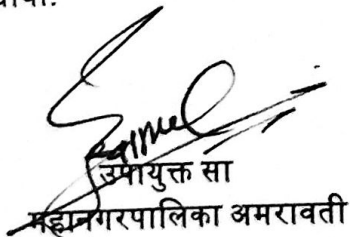 उपायुक्त सा
महानगरपालिका अमरावती